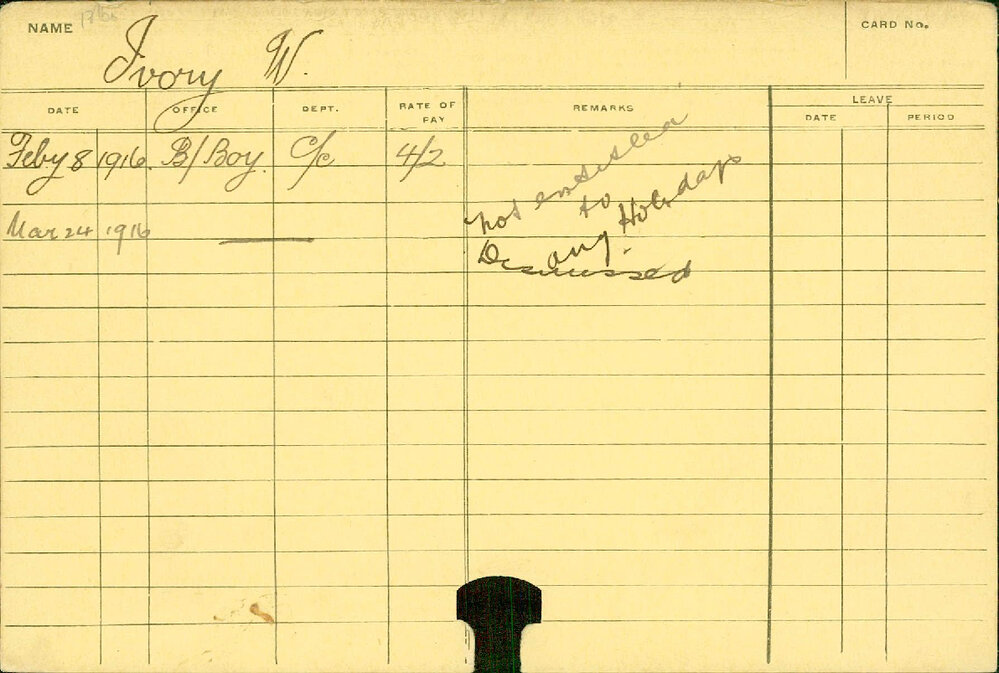 NAME Ivory W. CARD No.
DATE OFFICE DEPT. RATE OF PAY REMARKS LEAVE
DATE PERIOD
Feby 8 1916. B/Boy. C/c 4/2
not entitled
to
any Holidays
Mar 24 1916 — Dismissed